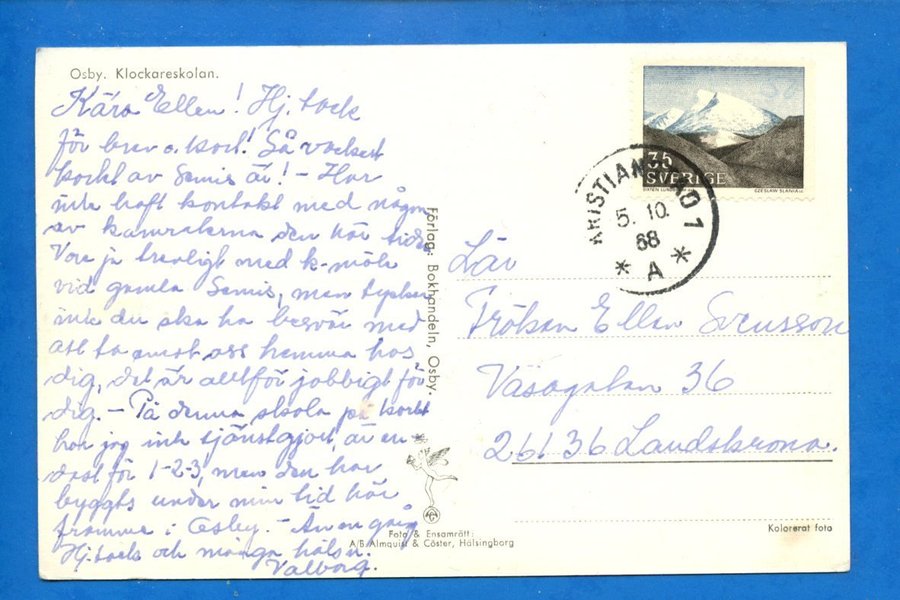 Osby. Klockareskolan.
Kära Ellen! Hj. tack
för brev o. kort! Så vackert
kortet av Semis är! - Har
inte haft kontakt med någon
av kamraterna den här tiden
Vore ju trevligt med k-möte
vid gamla Semis, men tycker
inte du ska ha besvär med
att ta emot oss hemma hos
dig, det är alltför jobbigt för
dig. - På denna skola på kortet
har jag inte tjänstgjort, är en-
dast för 1-2-3, men den har
byggts under min tid här
framme i Osby. - Än en gång
Hj. tack och många hälsn.
Valborg.
Förlag: Bokhandeln, Osby.
Foto & Ensamrätt:
A/B Almquist & Cöster, Hälsingborg
35
SVERIGE
CZESLAW SLANIA SC
KRISTIANSTAD 1
5. 10.
68
* A *
Lär
Fröken Ellen Svensson
Väsagatan 36
261 36 Landskrona.
Kolorerat foto